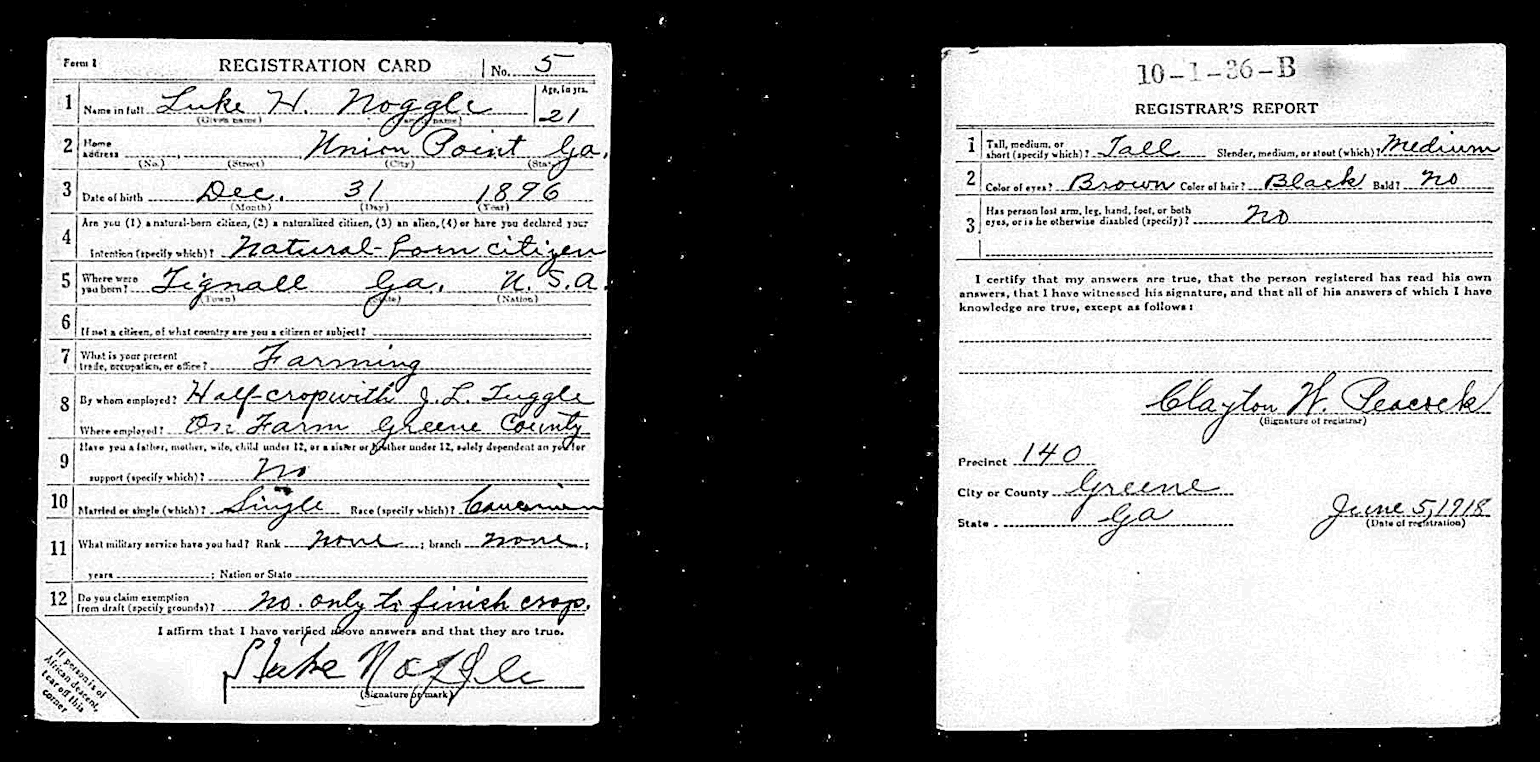 Form 1 REGISTRATION CARD No. 5
1 Name in full Luke H. Noggle Age, in yrs. 21
(Given name) (Family name)
2 Home address Union Point Ga.
(No.) (Street) (City) (State)
3 Date of birth Dec. 31 1896
(Month) (Day) (Year)
4 Are you (1) a natural-born citizen, (2) a naturalized citizen, (3) an alien, (4) or have you declared your
intention (specify which)? Natural-born citizen
5 Where were you born? Tignall Ga. U.S.A.
(Town) (State) (Nation)
6 If not a citizen, of what country are you a citizen or subject?
7 What is your present trade, occupation, or office? Farming
8 By whom employed? Half-crop with J. L. Tuggle
Where employed? On Farm Greene County
9 Have you a father, mother, wife, child under 12, or a sister or brother under 12, solely dependent on you for
support (specify which)? No
10 Married or single (which)? Single Race (specify which)? Caucasian
11 What military service have you had? Rank none ; branch none ;
years ; Nation or State
12 Do you claim exemption from draft (specify grounds)? No. only to finish crop.
I affirm that I have verified above answers and that they are true.
Luke Noggle
(Signature or mark)
If person is of
African descent,
tear off this
corner
10-1-36-B
REGISTRAR'S REPORT
1 Tall, medium, or short (specify which)? Tall Slender, medium, or stout (which)? Medium
2 Color of eyes? Brown Color of hair? Black Bald? No
3 Has person lost arm, leg, hand, foot, or both eyes, or is he otherwise disabled (specify)? No
I certify that my answers are true, that the person registered has read his own
answers, that I have witnessed his signature, and that all of his answers of which I have
knowledge are true, except as follows:
Clayton W. Peacock
(Signature of registrar)
Precinct 140
City or County Greene
State Ga June 5, 1918
(Date of registration)